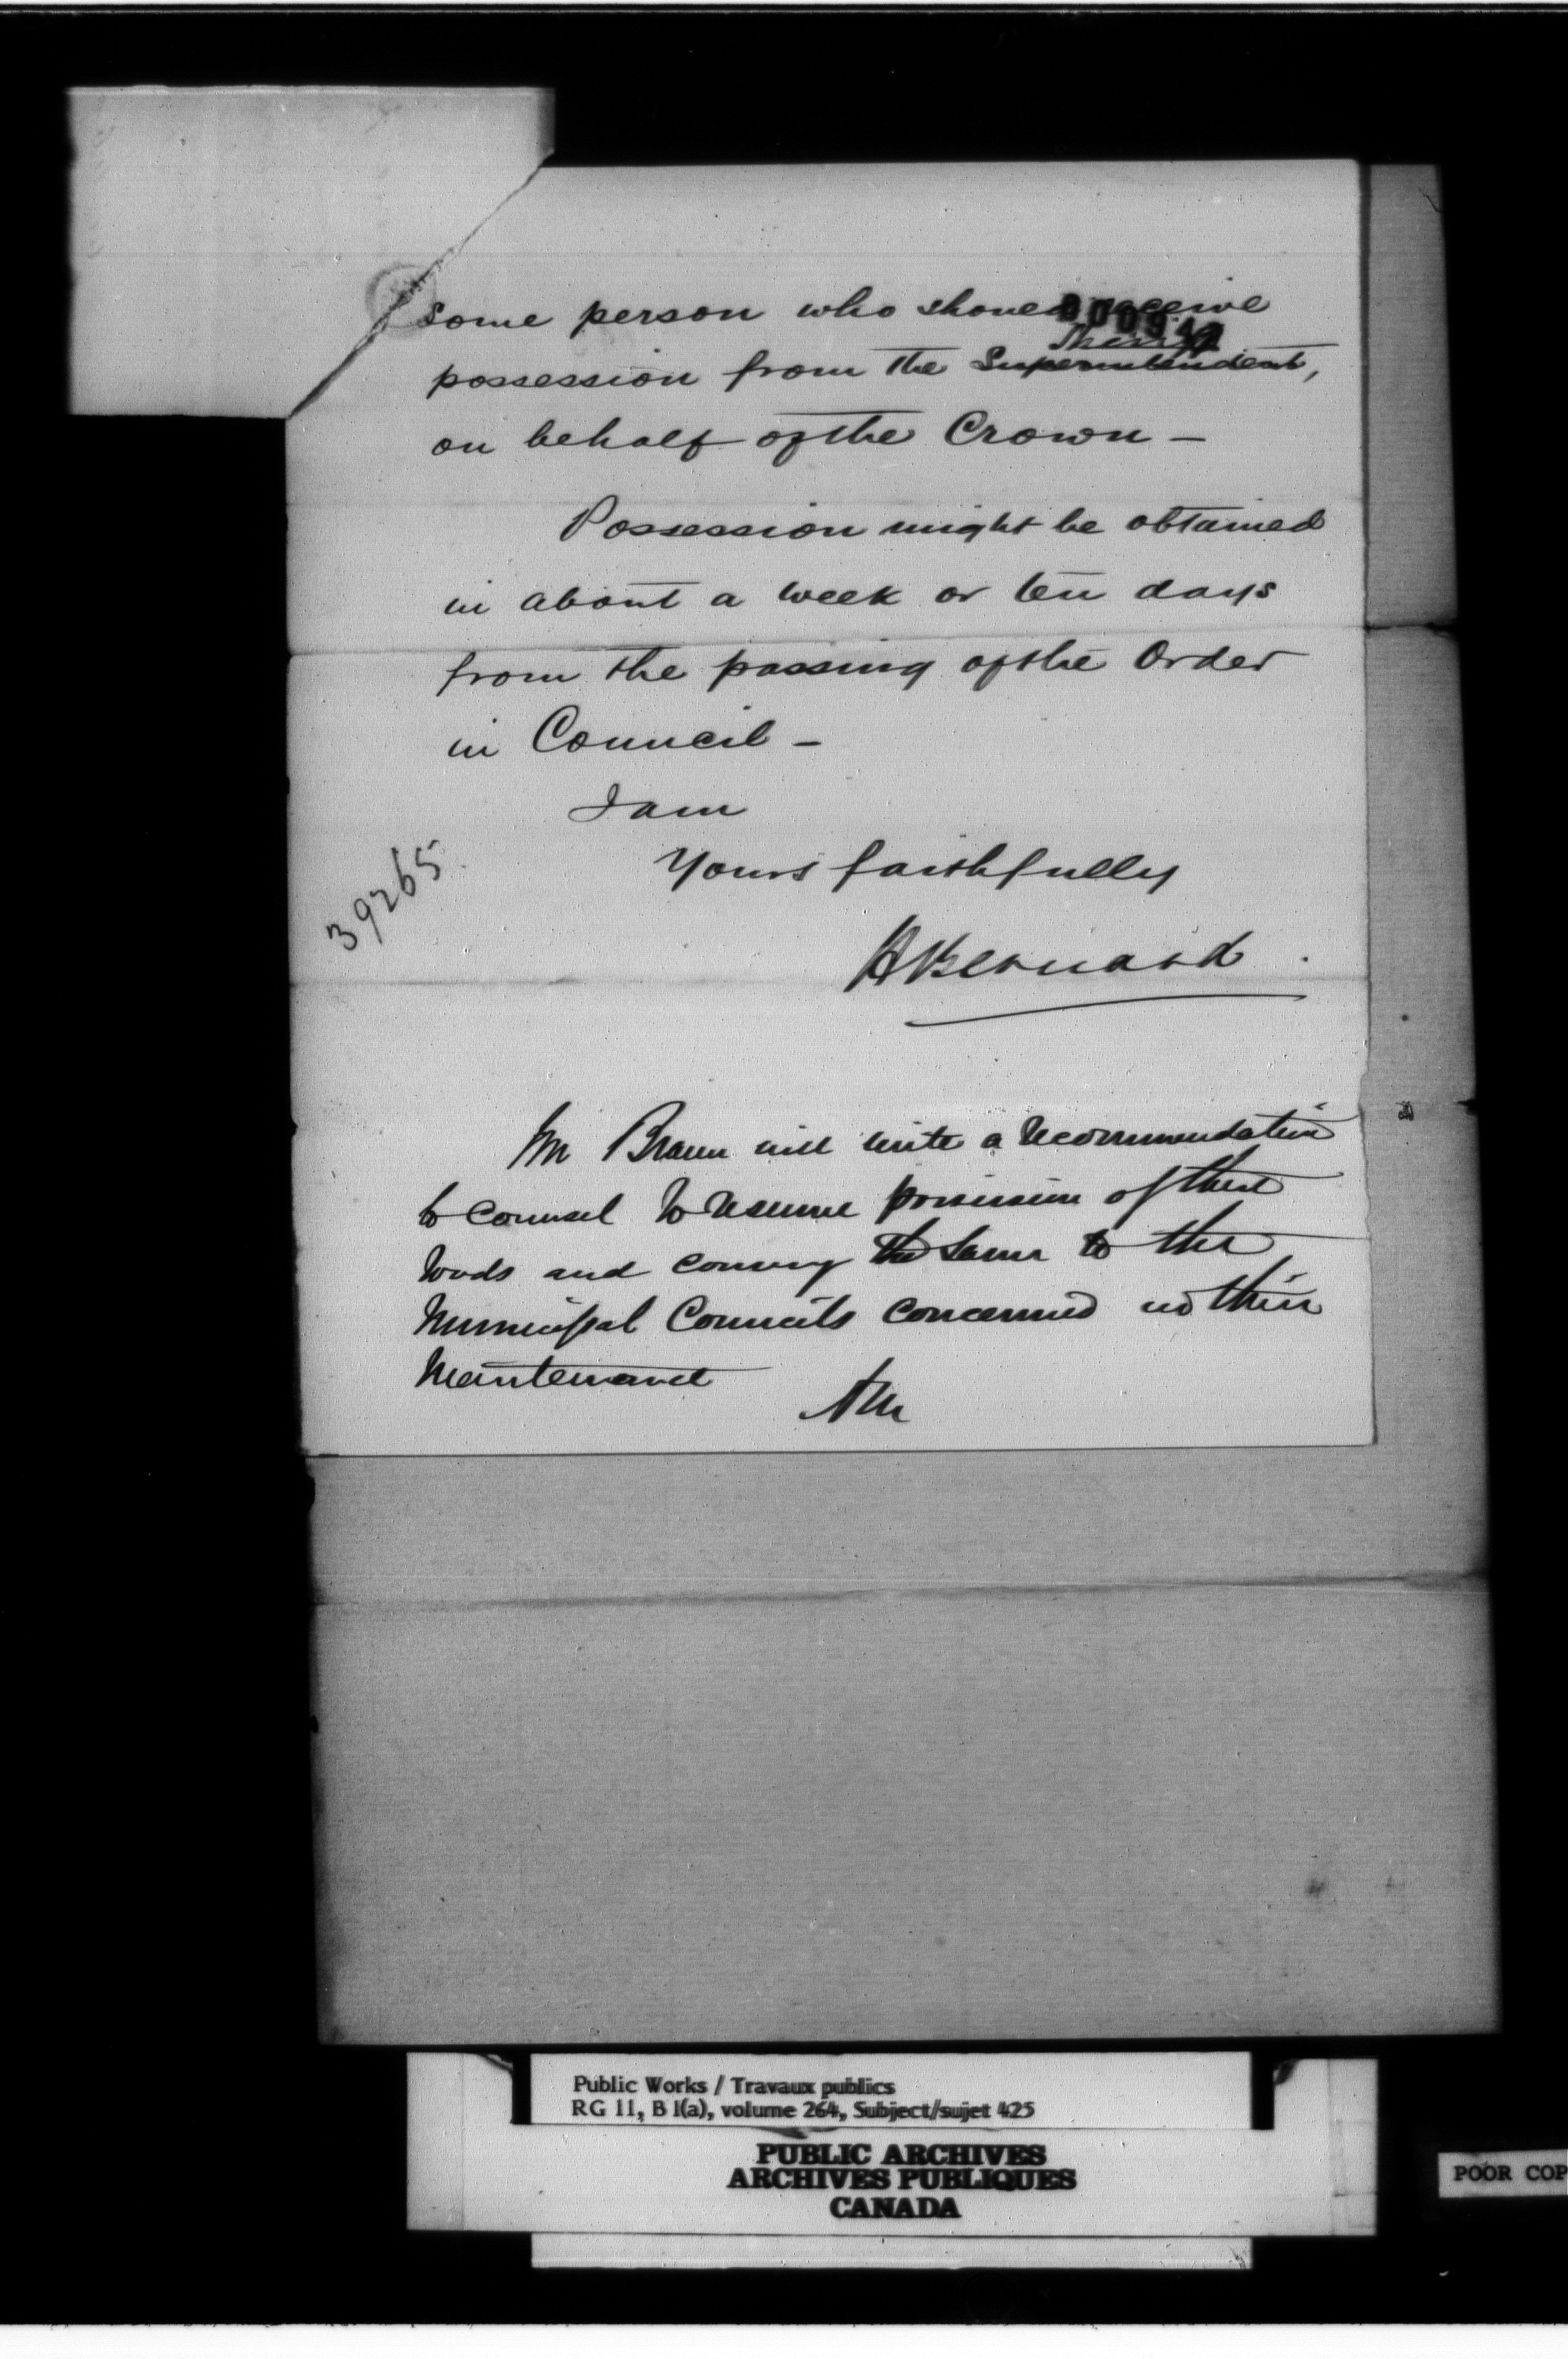 000942
some person who should receive
Sheriff
possession from the Superintendent,
on behalf of the Crown –
Possession might be obtained
in about a week or ten days
from the passing of the Order
in Council –
I am
Yours faithfully
39265
HBernard.
Mr Braun will write a recommendation
to Council to resume possession of these
roads and convey the same to the
Municipal Councils concerned in their
Maintenance
Public Works / Travaux publics
RG 11, B 1(a), volume 264, Subject/sujet 425
PUBLIC ARCHIVES
ARCHIVES PUBLIQUES
CANADA
POOR COP